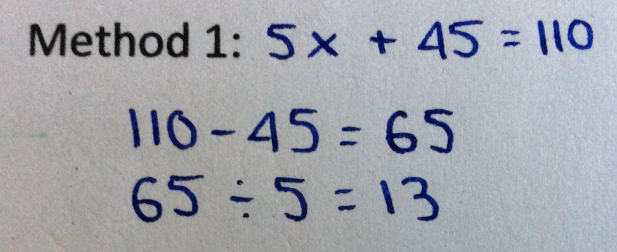 Method 1: 5x + 45 = 110
110 - 45 = 65
65 ÷ 5 = 13